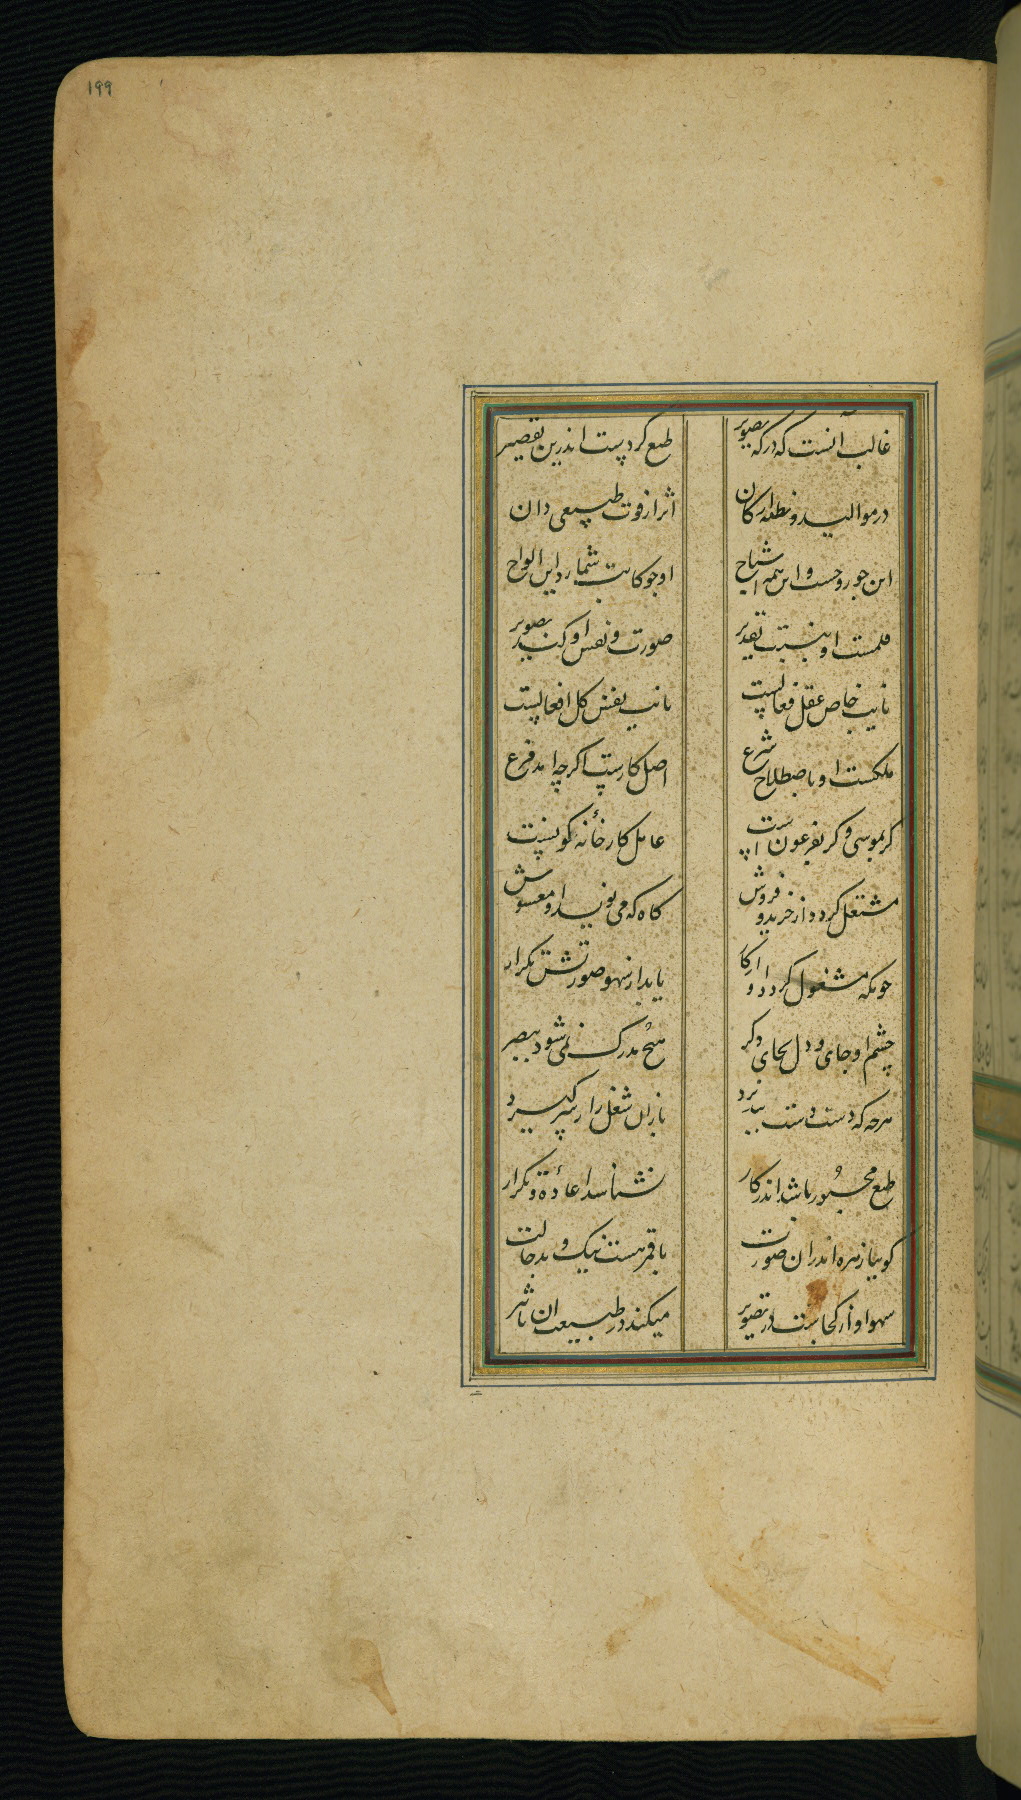 ۱۹۹
غالب آنست که در که تصویر طبع کردست اندرین تقصیر
در موالید و نطفه ارکان اثر از قوت طبیعی دان
این جو روحست و این همه اشباح او جو کاتب شمارد این الواح
قلمست او بنسبت تقدیر صورت و نفس او کند تصویر
نایب خاص عقل فعالست نایب نفس کل افعالست
ملکست او باصطلاح شرع اصل کارست اکرچه امد فرع
کر بموسی و کر بفرعون است عامل کارخانه کونست
مشتعل کردد از خرید و فروش کاه که می نوید او مغشوش
جونکه مشغول کردد او را کا یابد از سهو صورتش تکرار
چشم او جای و دل بجای دکر هیچ مدرک نمی شود ببصر
هرچه که دست دست ببرد باز ان شغل را ز سر کیرد
طبع مجبور باشد اندر کار نشناسد اعاده و تکرار
کوییا زهره اندران صورت با قمر هست نیک و بد حالت
سهو او از کجاست در تصویر میکند در طبیعت ان تاثیر